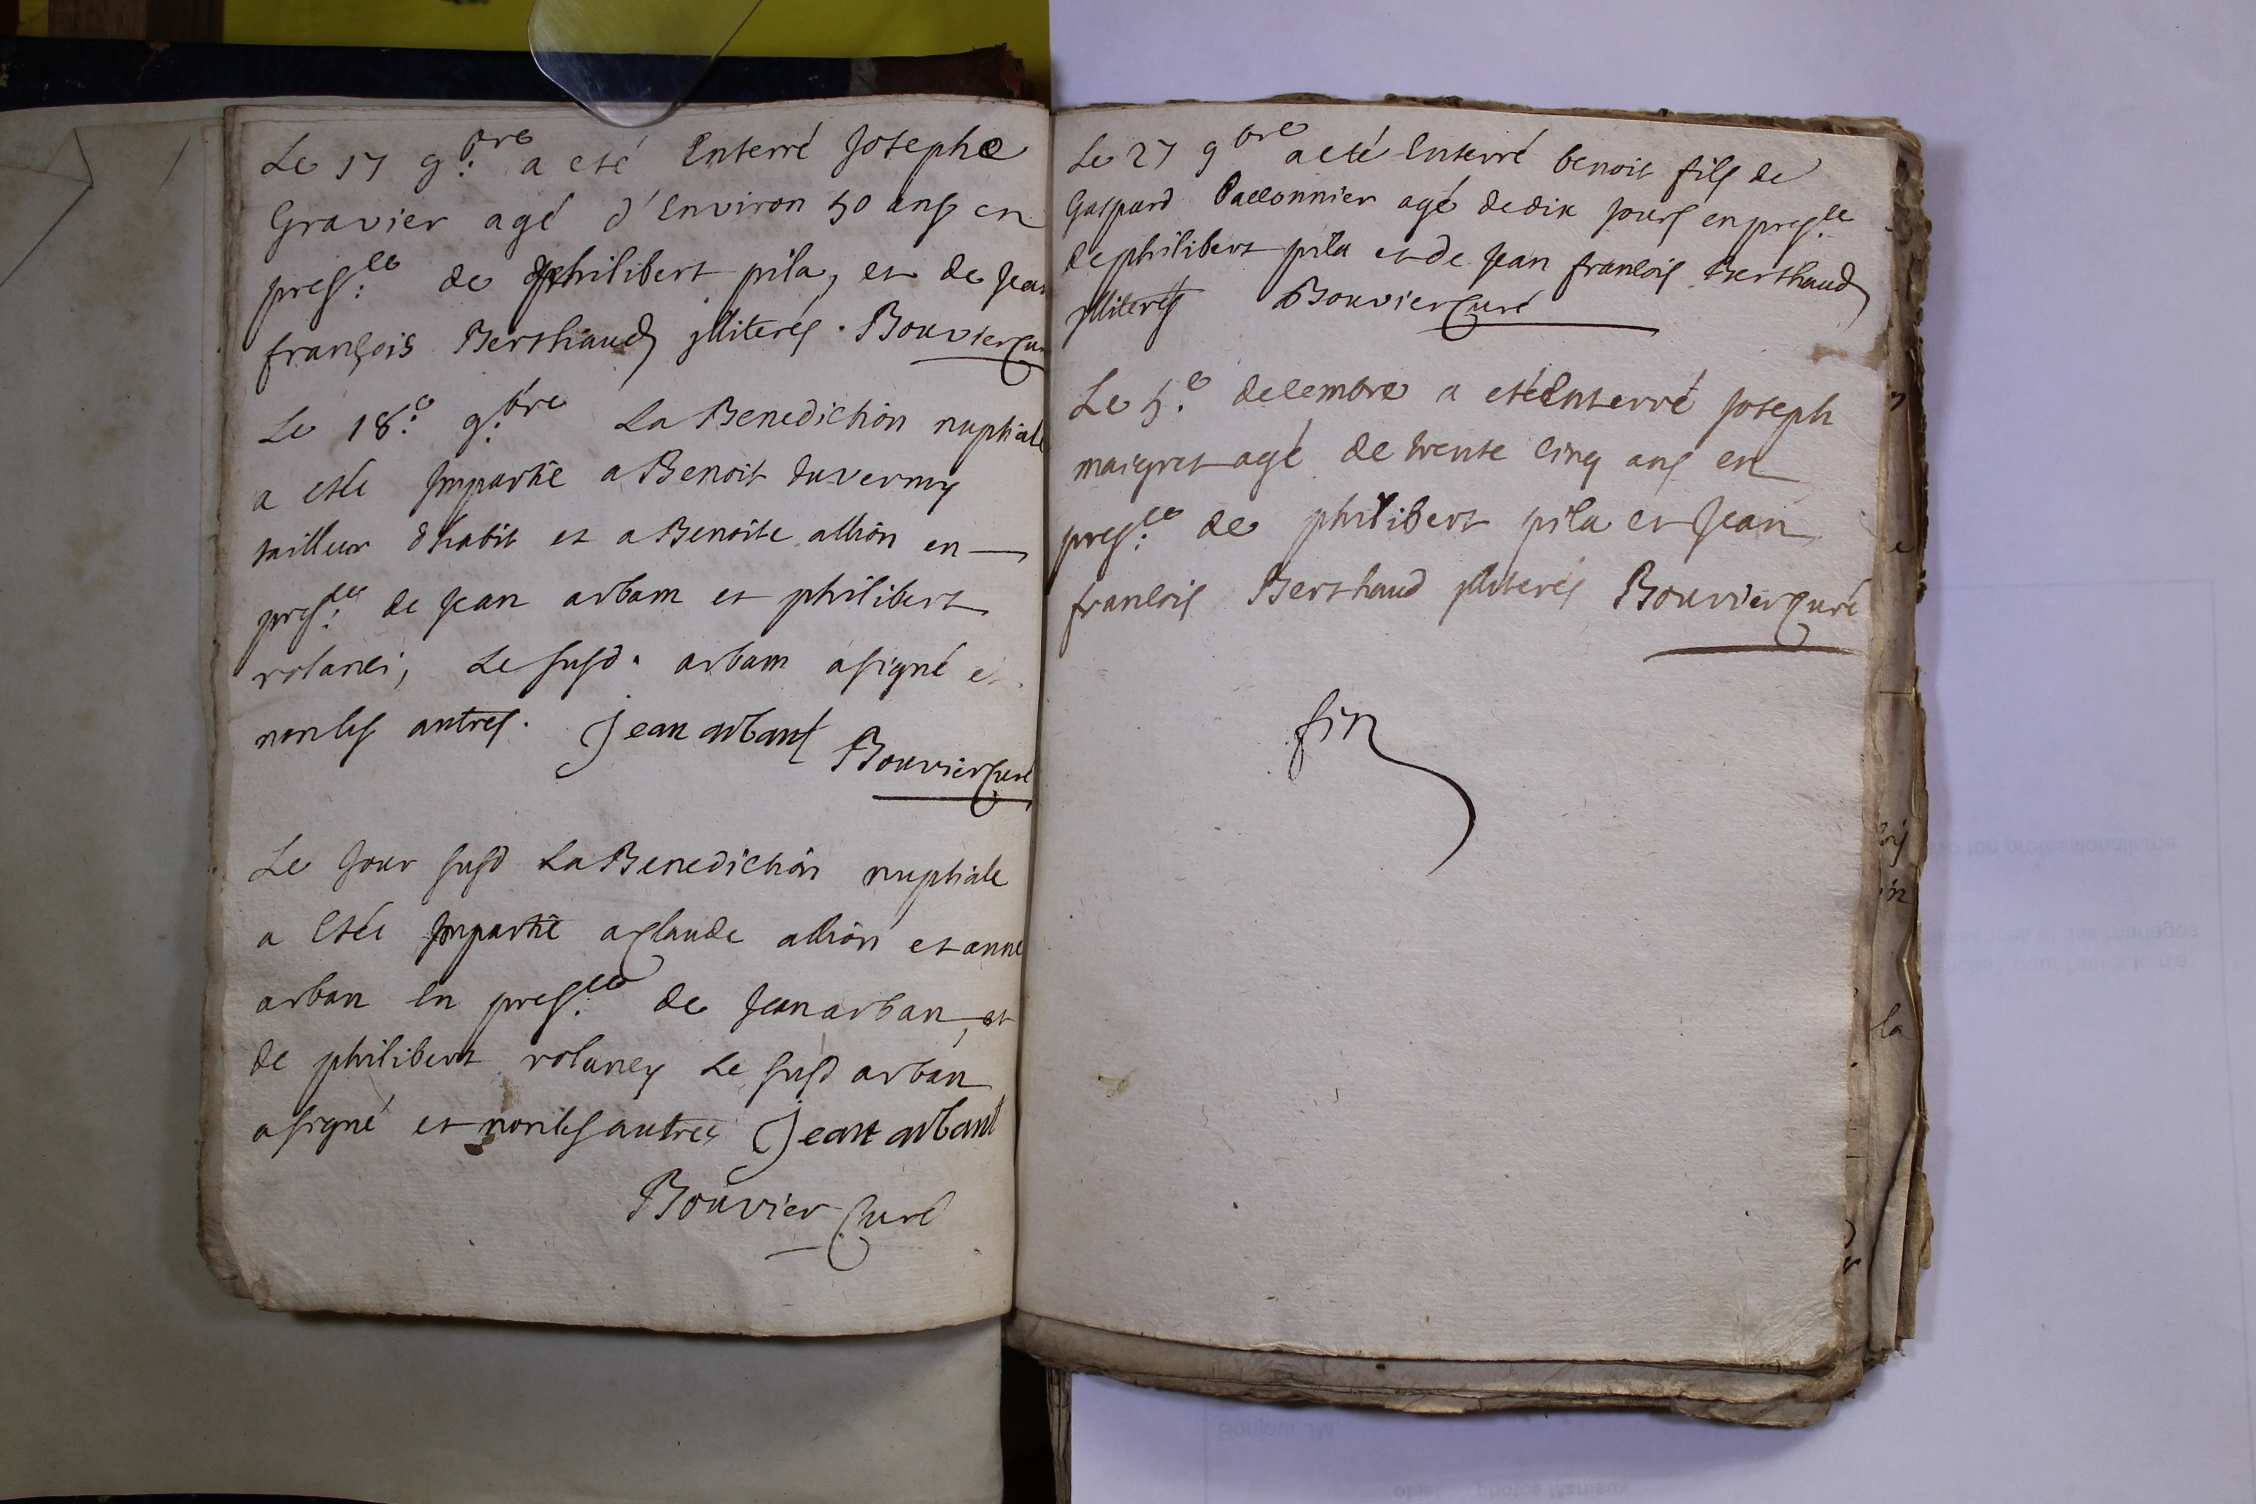 Le 17 9:bre a eté Enterré Josephe
Gravier agé d'Environ 50 ans en
pres:ce de philibert pila, et de Jean
françois Berthaud illiterés . Bouvier Cur
Le 18:e 9:bre La Benediction nuptiale
a etée Impartie a Benoit duverny
tailleur d habit et a Benoite allion en
pres:ce de Jean arbam et philibert
rolanci, Le susd. arbam a signé et
non les autres. Jean arbant
Bouvier Curé
Le Jour susd La Benediction nuptiale
a Etée Impartie a Claude allion et anne
arban En pres:ce de Jean arban, et
de philibert rolancy Le susd arban
a signé et non les autres Jean arbant
Bouvier Curé
Le 27 9bre a eté Enterré benoit fils de
Gaspard agé de dix Jours en pres:ce
de philibert pila et de Jean francois Berthaud
illiterés Bouvier Curé
Le 5:e decembre a eté Enterré Joseph
maigret agé de trente cinq ans en
pres:ce de philibert pila et Jean
francois Berthaud illiterés Bouvier Curé
fin